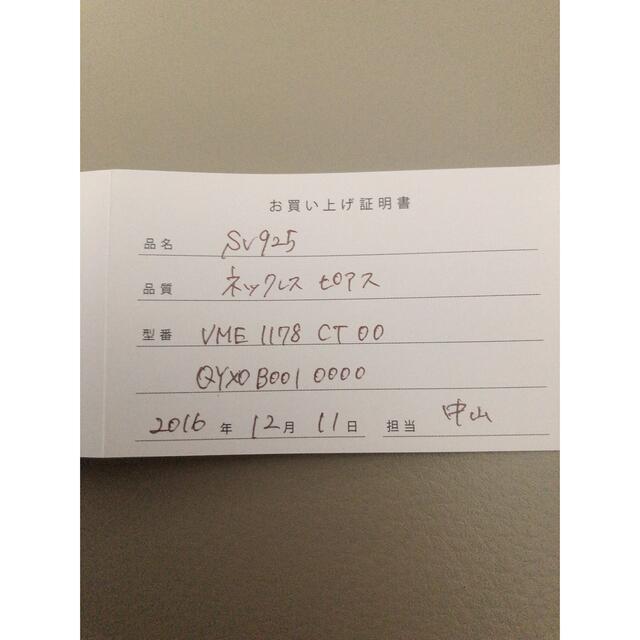 お買い上げ証明書
品名 SV925
品質 ネックレス ピアス
型番 VME 1178 CT 00
QYX0B001 0000
2016 年 12 月 11 日 担当 中山